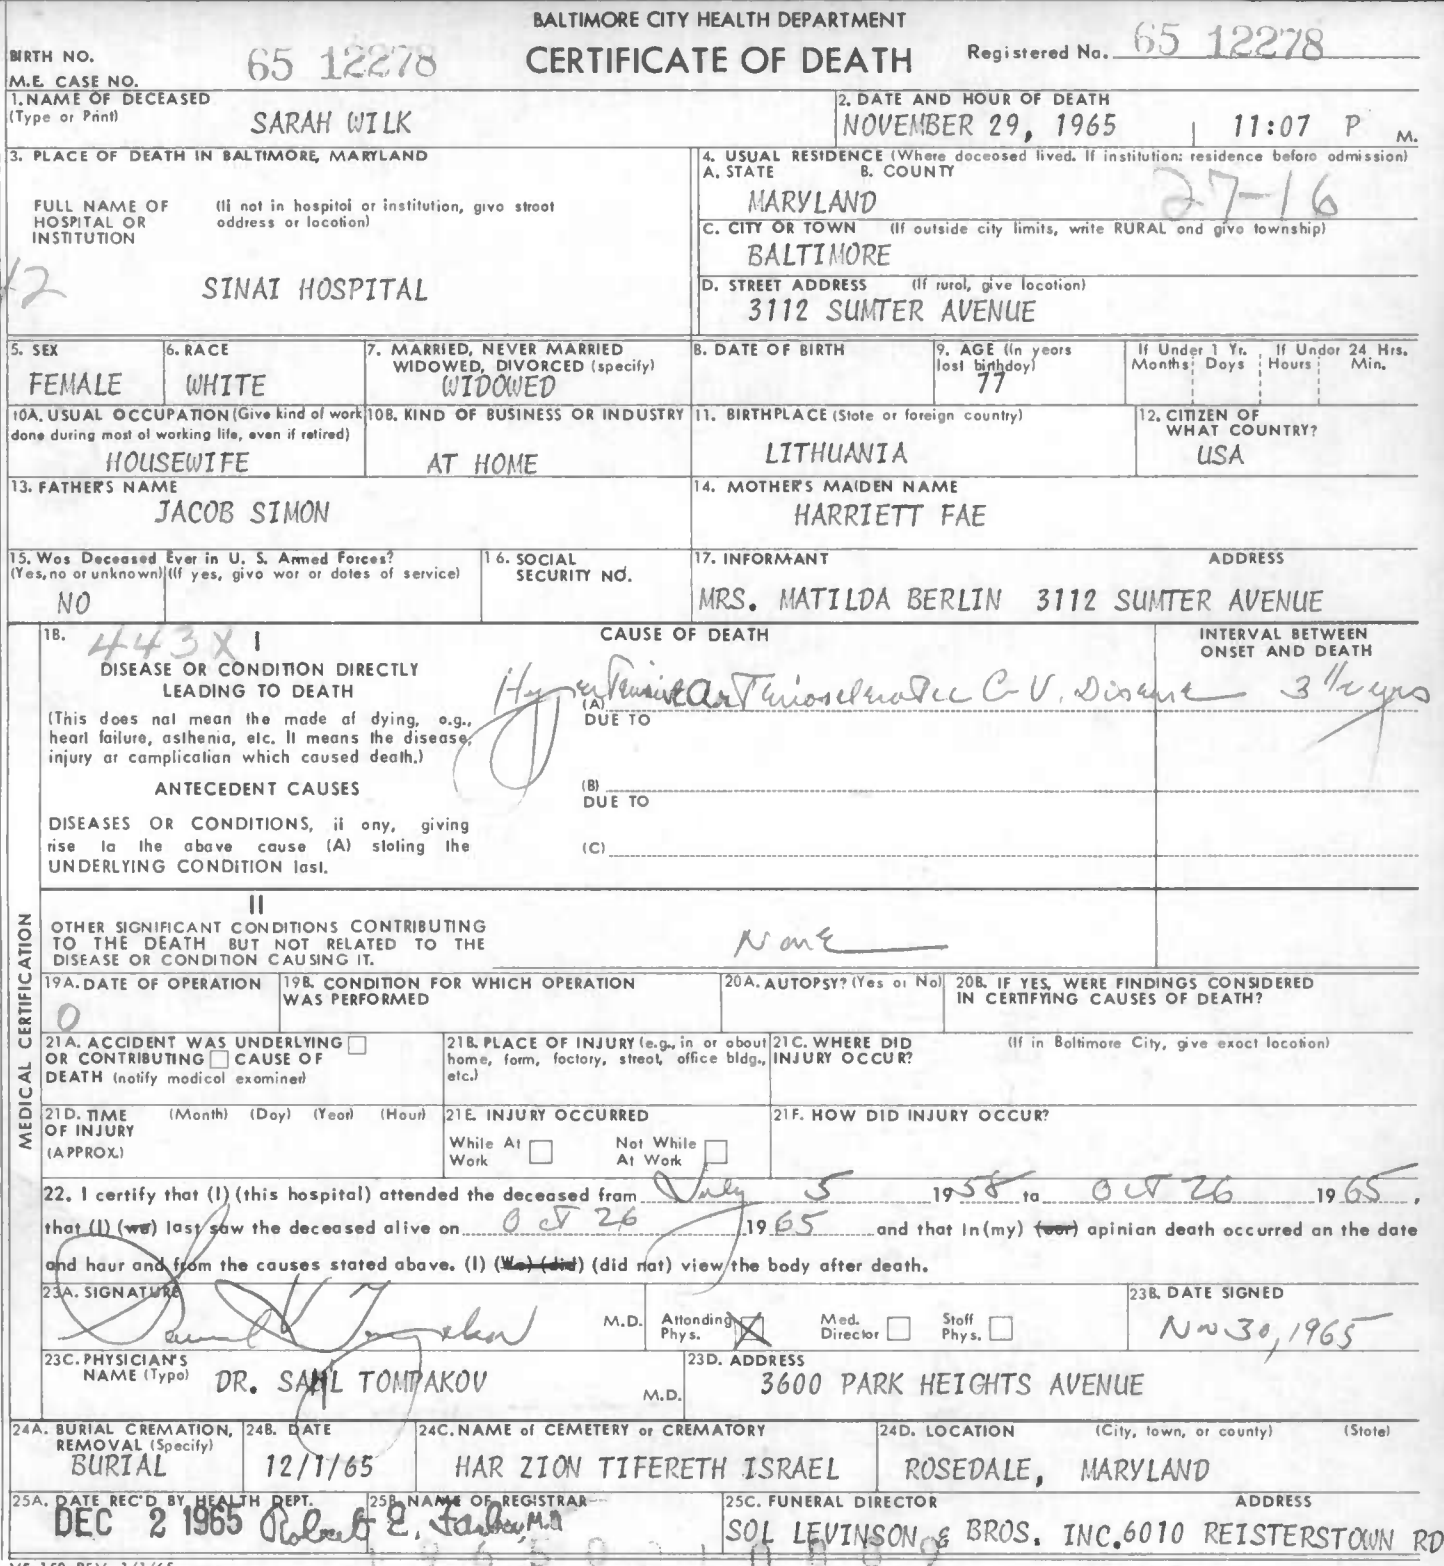 BALTIMORE CITY HEALTH DEPARTMENT
CERTIFICATE OF DEATH
BIRTH NO.
M.E. CASE NO.
65 12278
Registered No. 65 12278
1. NAME OF DECEASED
(Type or Print)
SARAH WILK
2. DATE AND HOUR OF DEATH
NOVEMBER 29, 1965 11:07 P M.
3. PLACE OF DEATH IN BALTIMORE, MARYLAND
FULL NAME OF HOSPITAL OR INSTITUTION
(If not in hospital or institution, give street address or location)
42
SINAI HOSPITAL
4. USUAL RESIDENCE (Where deceased lived. If institution: residence before admission)
A. STATE B. COUNTY
MARYLAND 27-16
C. CITY OR TOWN (If outside city limits, write RURAL and give township)
BALTIMORE
D. STREET ADDRESS (If rural, give location)
3112 SUMTER AVENUE
5. SEX
FEMALE
6. RACE
WHITE
7. MARRIED, NEVER MARRIED
WIDOWED, DIVORCED (specify)
WIDOWED
8. DATE OF BIRTH
9. AGE (In years last birthday)
77
If Under 1 Yr. Months Days
If Under 24 Hrs. Hours Min.
10A. USUAL OCCUPATION (Give kind of work
done during most of working life, even if retired)
HOUSEWIFE
10B. KIND OF BUSINESS OR INDUSTRY
AT HOME
11. BIRTHPLACE (State or foreign country)
LITHUANIA
12. CITIZEN OF WHAT COUNTRY?
USA
13. FATHER'S NAME
JACOB SIMON
14. MOTHER'S MAIDEN NAME
HARRIETT FAE
15. Was Deceased Ever in U. S. Armed Forces?
(Yes, no or unknown) (If yes, give war or dates of service)
NO
16. SOCIAL SECURITY NO.
17. INFORMANT ADDRESS
MRS. MATILDA BERLIN 3112 SUMTER AVENUE
MEDICAL CERTIFICATION
18. 443X I
CAUSE OF DEATH
INTERVAL BETWEEN ONSET AND DEATH
DISEASE OR CONDITION DIRECTLY
LEADING TO DEATH
(This does not mean the mode of dying, e.g.,
heart failure, asthenia, etc. It means the disease,
injury or complication which caused death.)
(A) Hypertensive Arteriosclerotic C-V. Disease 3 1/2 yrs
DUE TO
ANTECEDENT CAUSES
(B)
DUE TO
DISEASES OR CONDITIONS, if any, giving
rise to the above cause (A) stating the
UNDERLYING CONDITION last.
(C)
II
OTHER SIGNIFICANT CONDITIONS CONTRIBUTING
TO THE DEATH BUT NOT RELATED TO THE
DISEASE OR CONDITION CAUSING IT.
None
19A. DATE OF OPERATION
0
19B. CONDITION FOR WHICH OPERATION WAS PERFORMED
20A. AUTOPSY? (Yes or No)
20B. IF YES, WERE FINDINGS CONSIDERED IN CERTIFYING CAUSES OF DEATH?
21A. ACCIDENT WAS UNDERLYING
OR CONTRIBUTING CAUSE OF
DEATH (notify medical examiner)
21B. PLACE OF INJURY (e.g., in or about
home, farm, factory, street, office bldg.,
etc.)
21C. WHERE DID INJURY OCCUR?
(If in Baltimore City, give exact location)
21D. TIME OF INJURY (APPROX.)
(Month) (Day) (Year) (Hour)
21E. INJURY OCCURRED
While At Work
Not While At Work
21F. HOW DID INJURY OCCUR?
22. I certify that (I) (this hospital) attended the deceased from July 5 1958 to Oct 26 1965,
that (I) (we) last saw the deceased alive on Oct 26 1965 and that in (my) (our) opinion death occurred on the date
and hour and from the causes stated above. (I) (We) (did) (did not) view the body after death.
23A. SIGNATURE
M.D.
Attending Phys.
Med. Director
Staff Phys.
23B. DATE SIGNED
Nov 30, 1965
23C. PHYSICIAN'S NAME (Type)
DR. SAML TOMPAKOV M.D.
23D. ADDRESS
3600 PARK HEIGHTS AVENUE
24A. BURIAL CREMATION, REMOVAL (Specify)
BURIAL
24B. DATE
12/1/65
24C. NAME of CEMETERY or CREMATORY
HAR ZION TIFERETH ISRAEL
24D. LOCATION (City, town, or county) (State)
ROSEDALE, MARYLAND
25A. DATE REC'D BY HEALTH DEPT.
DEC 2 1965
25B. NAME OF REGISTRAR
Robert E. Farber, M.D.
25C. FUNERAL DIRECTOR ADDRESS
SOL LEVINSON & BROS. INC. 6010 REISTERSTOWN RD